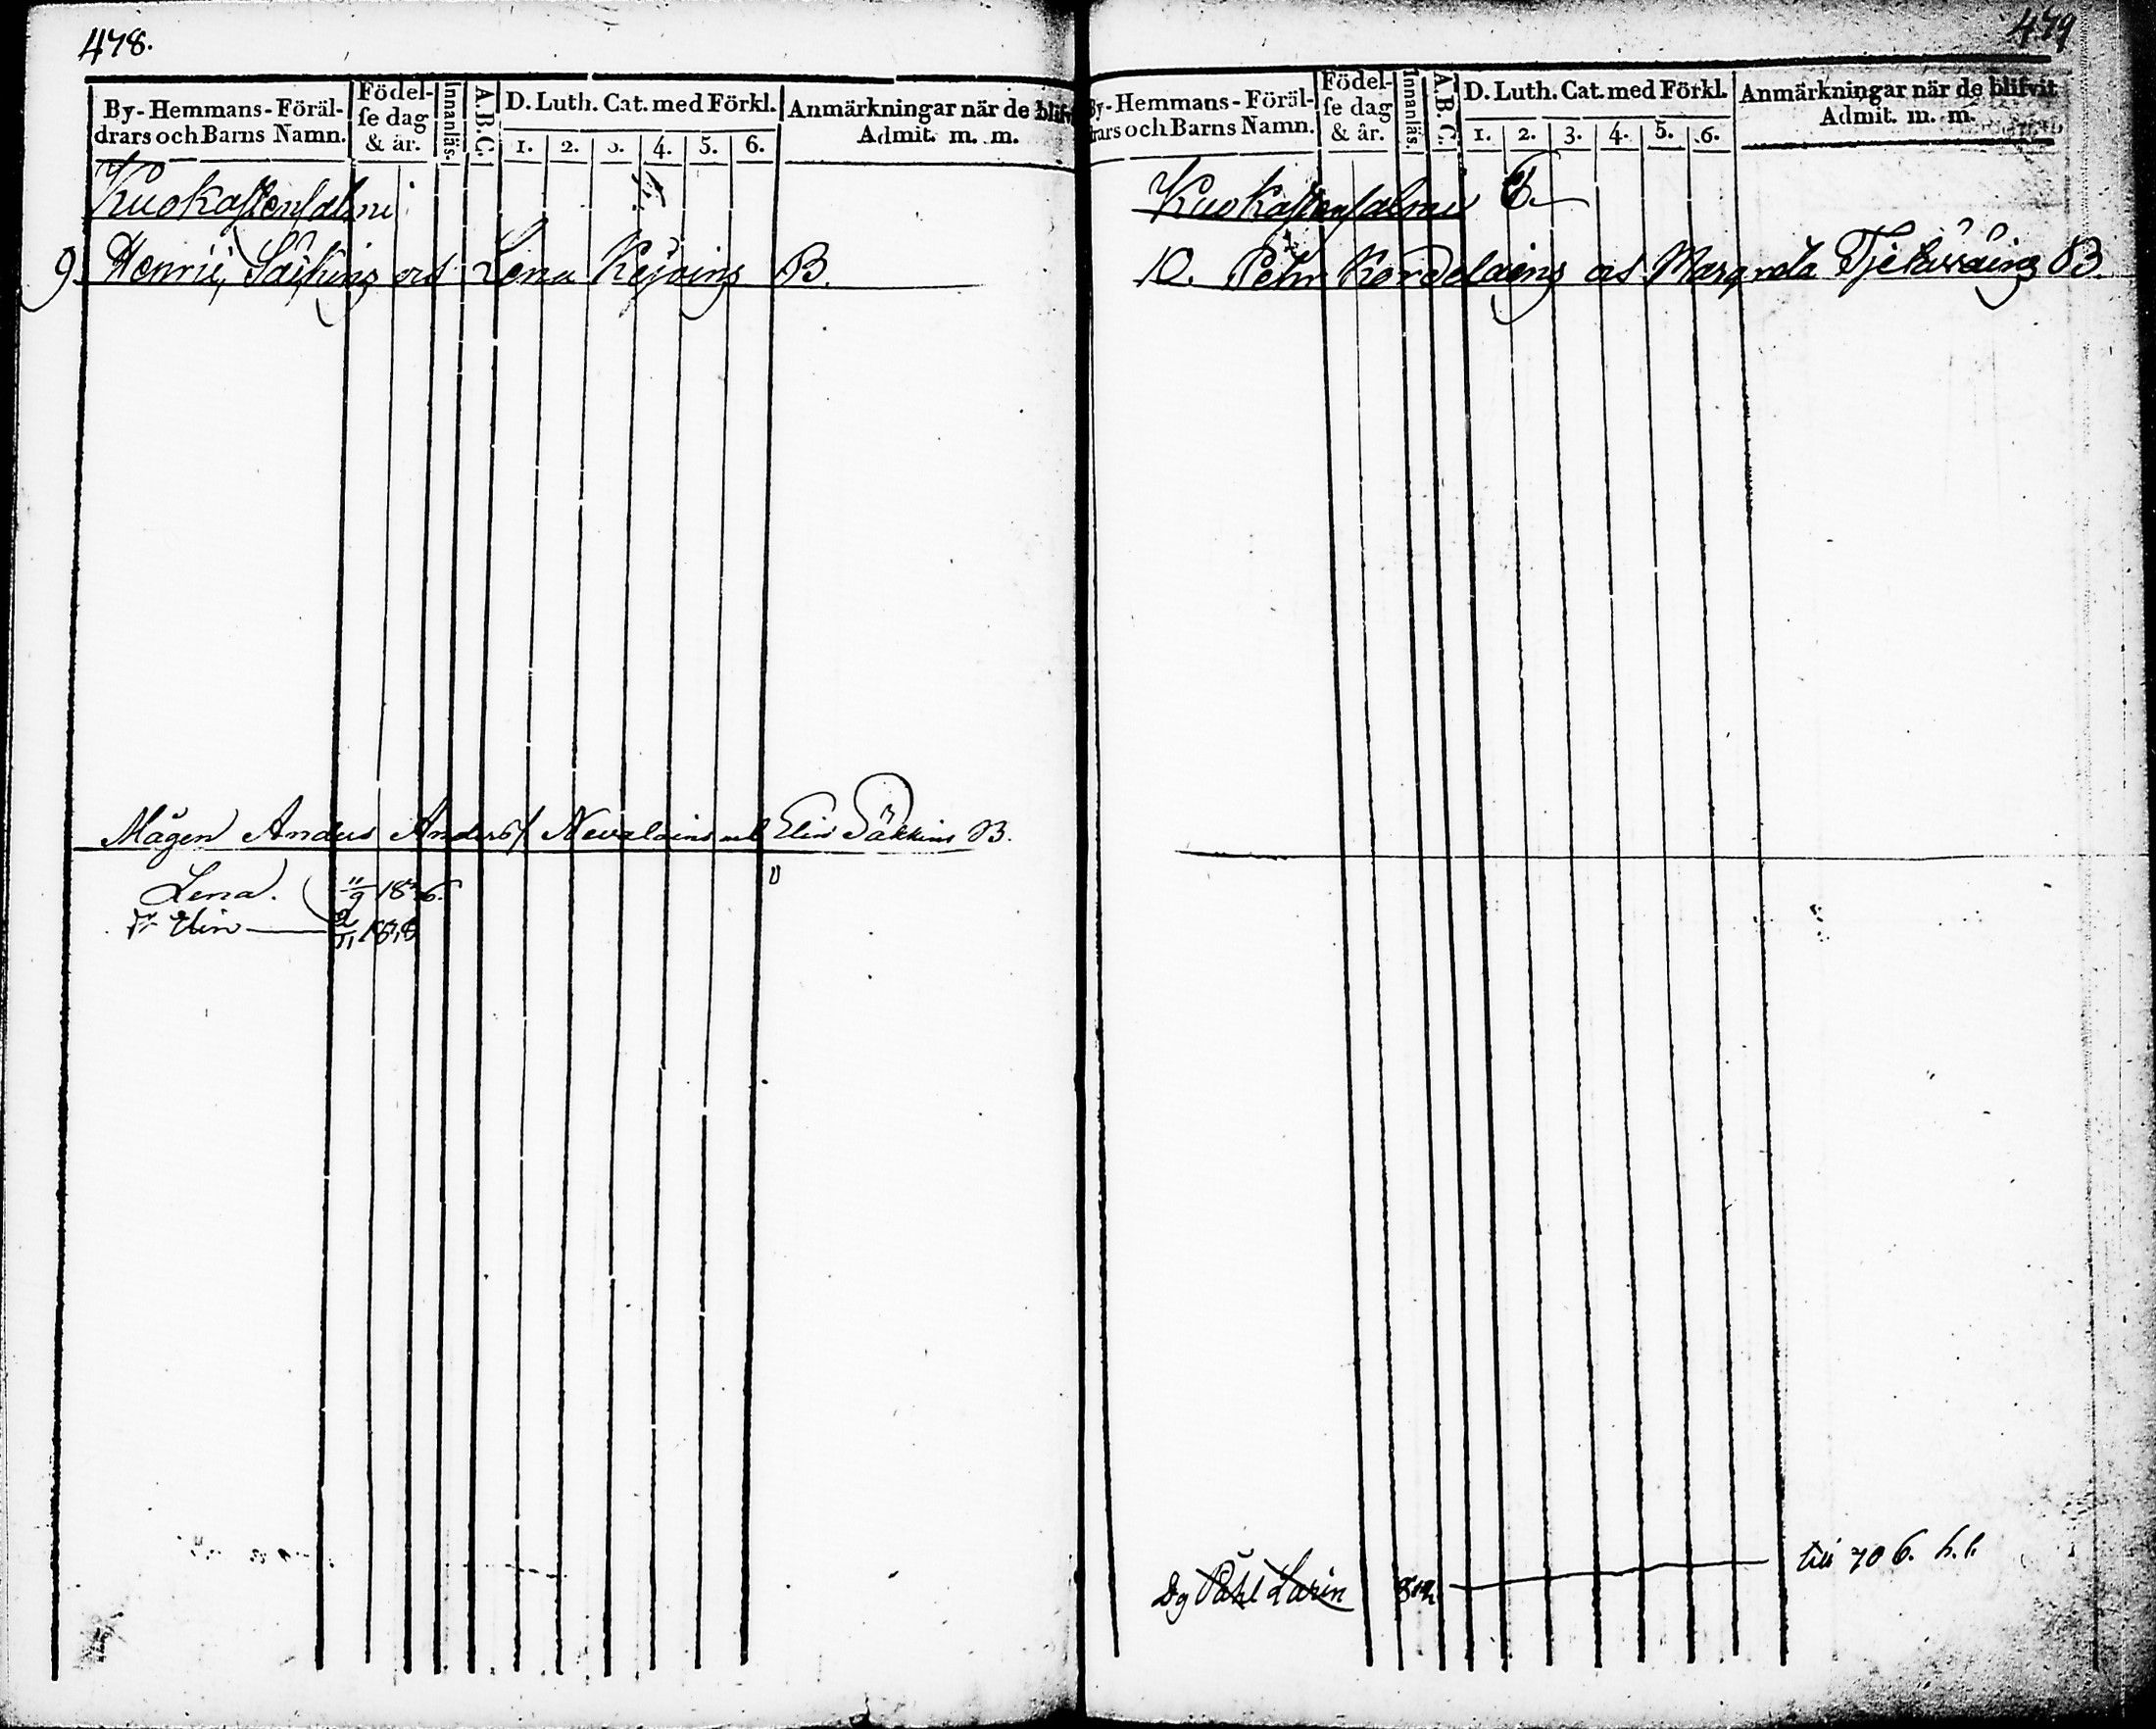 478.
By-Hemmans-Föräl-
drars och Barns Namn.
Födel-
se dag
& år.
Innanläs.
A.B.C.
D. Luth. Cat. med Förkl.
1. 2. 3. 4. 5. 6.
Anmärkningar när de blifv
Admit. m. m.
Kuokastensalmi
9. Henric od Lena B.
Mågen Anders Anders Nevalains Elin Säkkins B.
Lena. 11/9 1826.
Elin
479
By-Hemmans-Föräl-
drars och Barns Namn.
Födel-
se dag
& år.
Innanläs.
A.B.C.
D. Luth. Cat. med Förkl.
1. 2. 3. 4. 5. 6.
Anmärkningar när de blifvit
Admit. m. m.
Kuokastensalmi
10. Pehr Margreta B.
Dg Påhl Larin till 706. h.l.